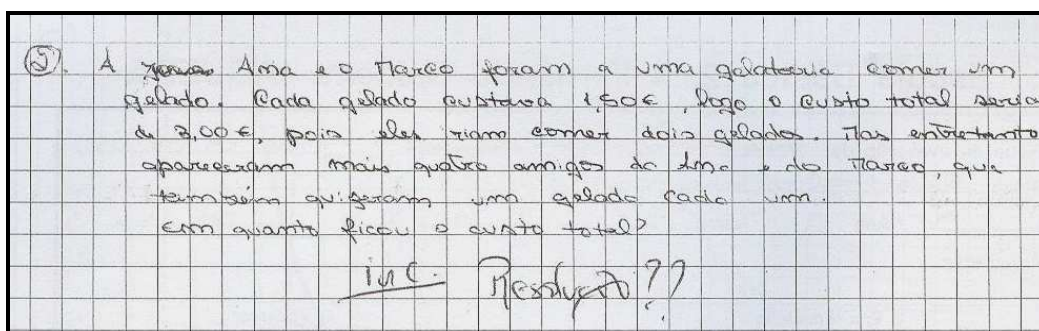 5. A Ana e o Marco foram a uma geladaria comer um
gelado. Cada gelado custava 1,50€, logo o custo total seria
de 3,00€, pois eles iam comer dois gelados. Mas entretanto
apareceram mais quatro amigos da Ana e do Marco, que
também quiseram um gelado cada um.
Em quanto ficou o custo total?
inc. Resolução??